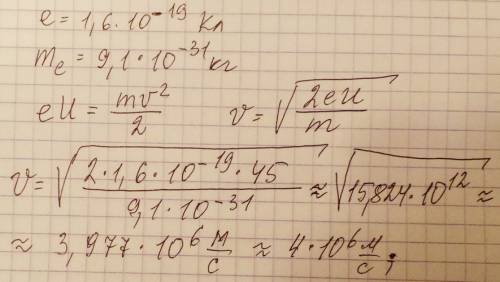 e = 1,6·10⁻¹⁹ Кл
mₑ = 9,1·10⁻³¹ кг
eU = mv²/2 v = √(2eU/m)
v = √(2·1,6·10⁻¹⁹·45/9,1·10⁻³¹) ≈ √(15,824·10¹²) ≈
≈ 3,977·10⁶ м/с ≈ 4·10⁶ м/с;